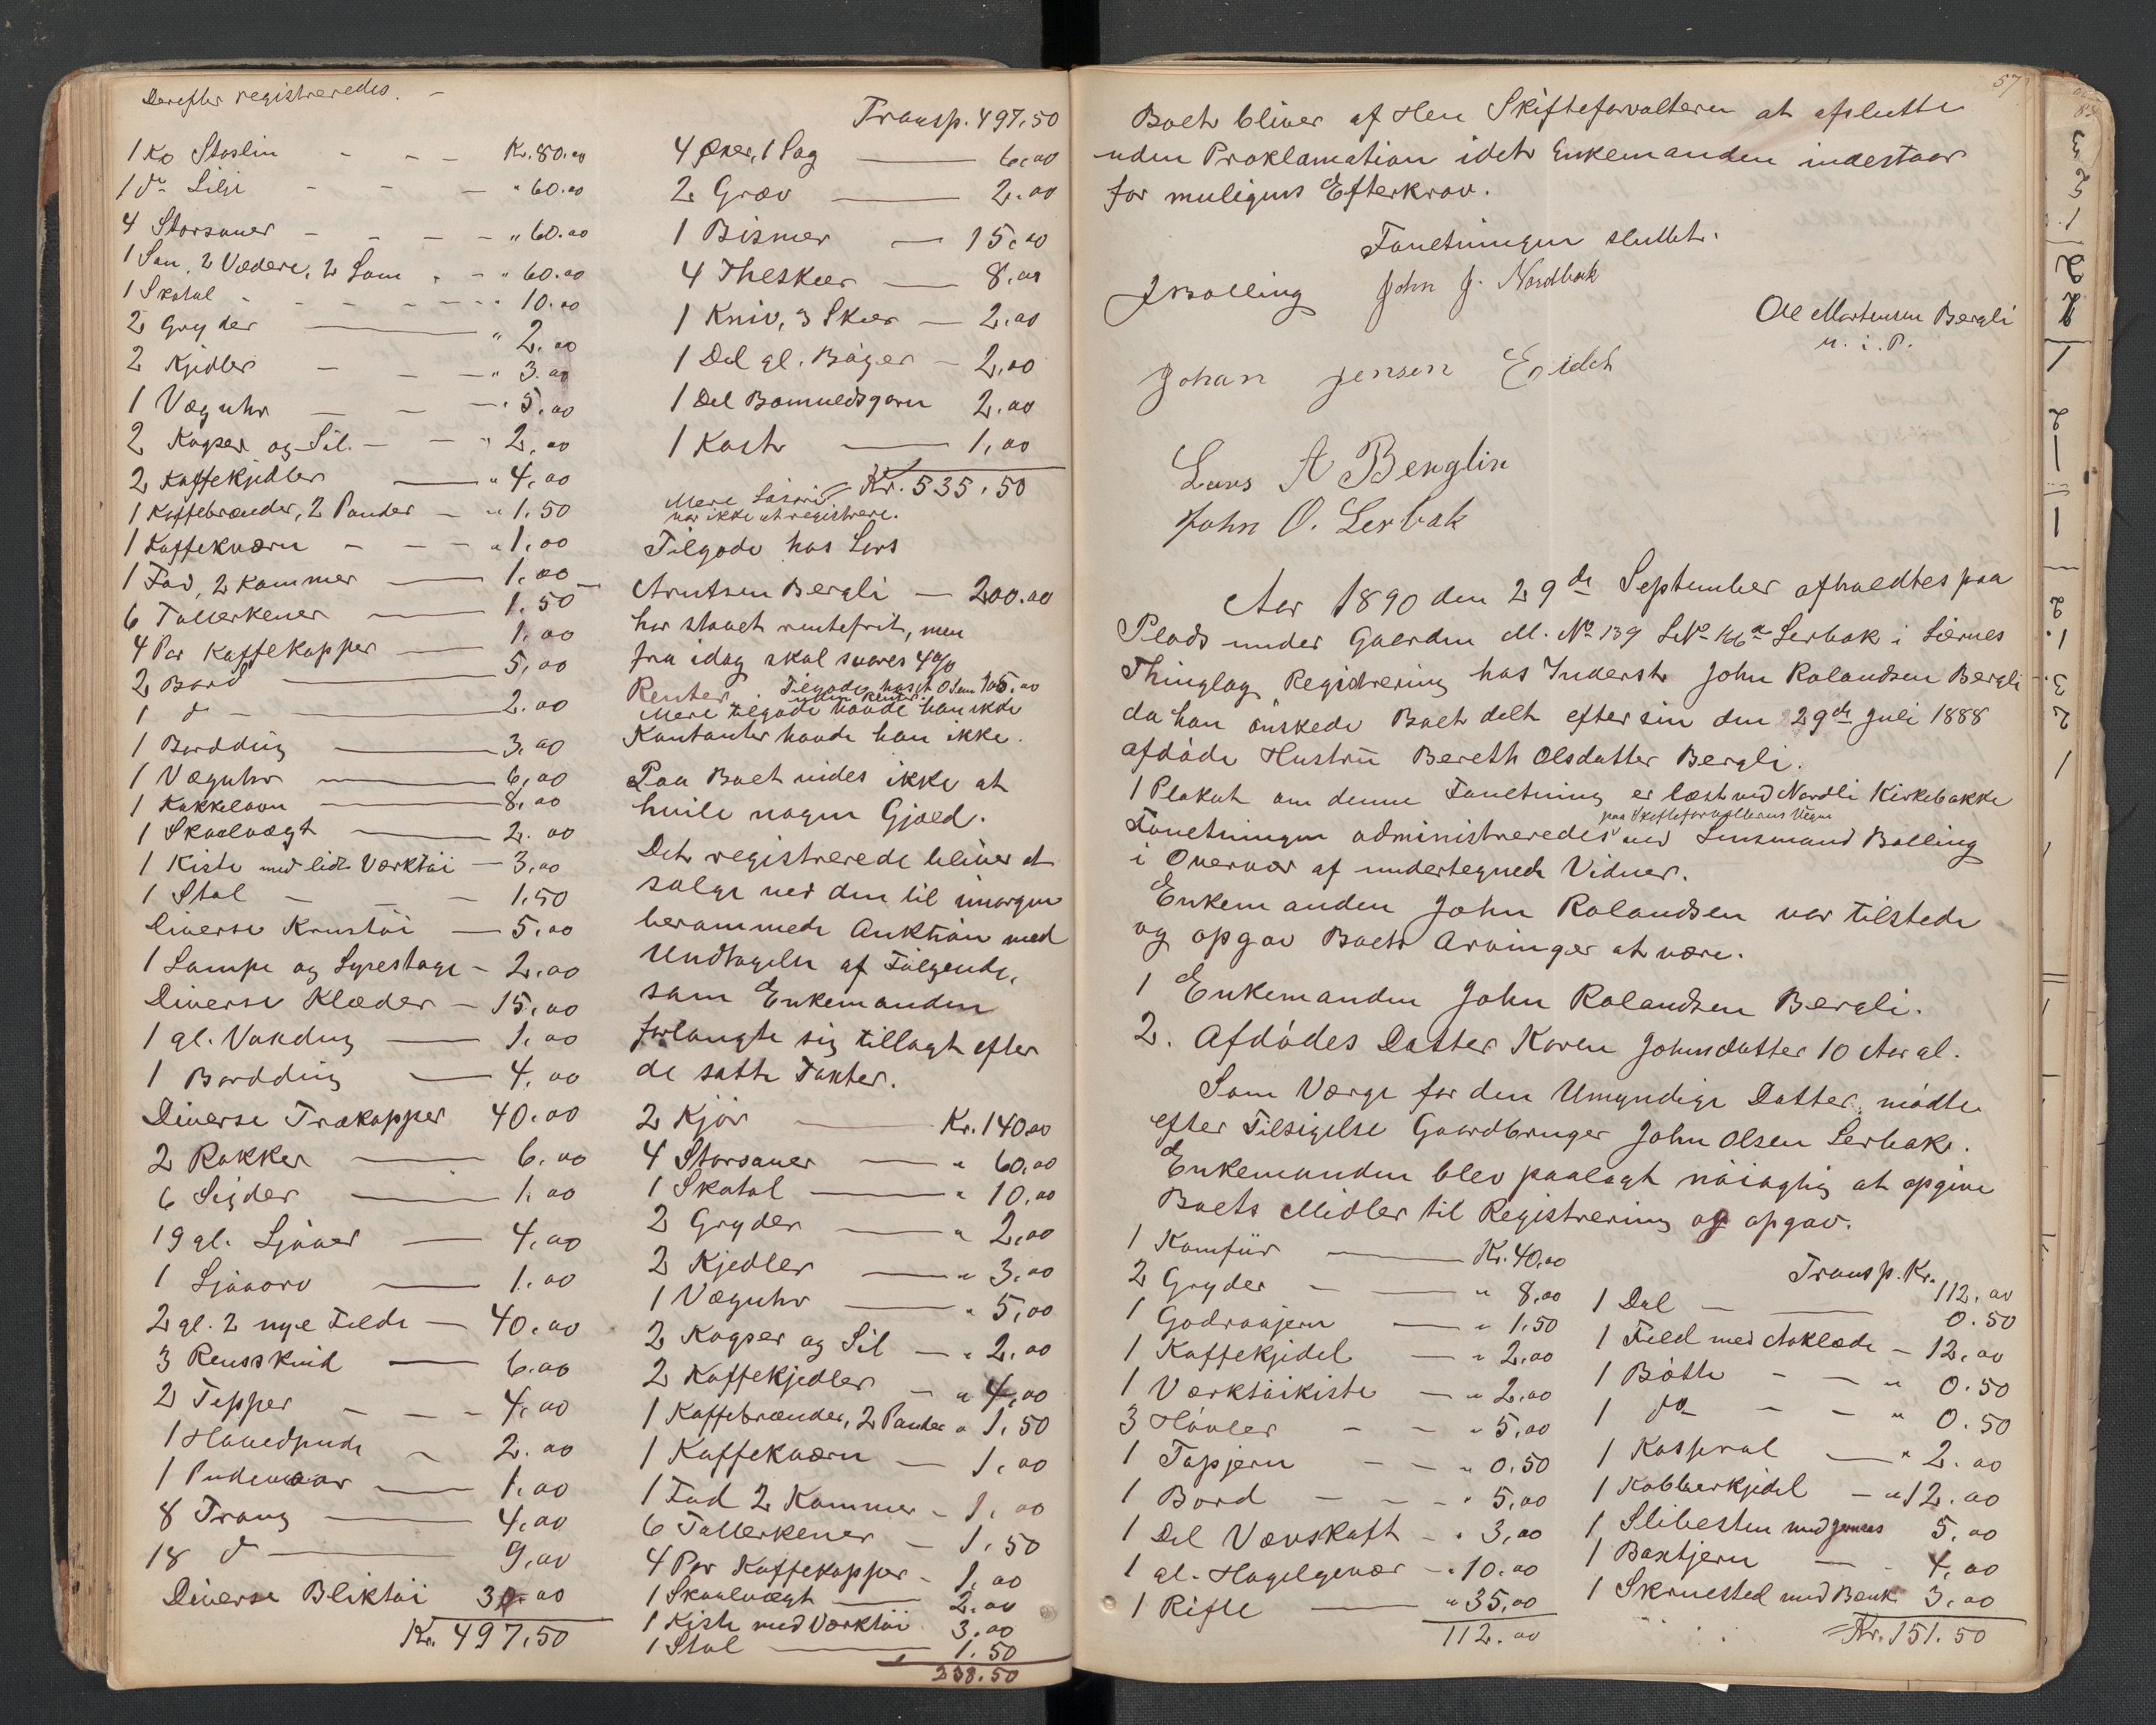 Derefter registreredes. -
1 Ko Staslin - - - Kr. 80.00
1 do Lilje - - - " 60.00
4 Storsauer - - - - " 60.00
1 Sau, 2 Vædere, 2 Lam - - " 60.00
1 Skatol - - - - - - - 10.00
2 Gryder — " 2.00
2 Kjedler - - - " 3.00
1 Væguhr - - - " 5.00
2 Kopper og Sil. - - " 2.00
2 Kaffekjedler — " 4.00
1 Kaffebrænder, 2 Pander - " 1.50
1 Kaffekværn - - - " 1.00
1 Fad, 2 Kammer — 1.00
6 Tallerkener — 1.50
4 Par Kaffekopper — 1.00
2 Bord — 5.00
1 do — 2.00
1 Borddug — 3.00
1 Væguhr — 6.00
1 Kakkelovn — 8.00
1 Skaalvægt — 2.00
1 Kiste med lidt Værktøi — 3.00
1 Stol - - - 1.50
Diverse Krustøi — 5.00
1 Lampe og Lysestage - 2.00
Diverse Klæder — 15.00
1 gl. Vokdug — 1.00
1 Borddug — 4.00
Diverse Trækopper 40.00
2 Rokker — 6.00
6 Sigder — 1.00
19 gl. Ljaaer — 4.00
1 Ljaaorv — 1.00
2 gl. 2 nye Felde — 40.00
3 Rensskind — 6.00
2 Tepper - - - 4.00
1 Hovedpude - 2.00
1 Pudevaar — 1.00
8 Traug — 4.00
18 do — 9.00
Diverse Bliktøi 30.00
Kr. 497.50
Transp. 497.50
4 Øxer, 1 Sag — 6.00
2 Græv — 2.00
1 Bismer — 15.00
4 Theskeer — 8.00
1 Kniv, 3 Skeer — 2.00
1 Del gl. Bøger — 2.00
1 Del Bomuldsgarn 2.00
1 Kost — 1.00
Kr. 535.50
Mere Løsøre
var ikke at registrere.
Tilgode hos Lars
Arntsen Bergli — 200.00
har staaet rentefrit, men
fra idag skal svares 4%
Renter. Tilgode hos O 105.00
uden Renter.
Mere tilgode havde han ikke
Kontanter havde han ikke.
Paa Boet vides ikke at
hvile nogen Gjæld.
Det registrerede bliver at
sælge ved den til imorgen
berammede Auktion med
Undtagelse af Følgende,
som Enkemanden
forlangte sig tillagt efter
de satte Taxter.
2 Kjør — Kr. 140.00
4 Storsauer — " 60.00
1 Skatol — " 10.00
2 Gryder — " 2.00
2 Kjedler — " 3.00
1 Væguhr — " 5.00
2 Kopper og Sil — " 2.00
2 Kaffekjedler - " 4.00
1 Kaffebrænder, 2 Pander " 1.50
1 Kaffekværn — 1.00
1 Fad 2 Kammer - 1.00
6 Tallerkener - 1.50
4 Par Kaffekopper - 1.00
1 Skaalvægt — 2.00
1 Kiste med Værktøi 3.00
1 Stol — 1.50
238.50
57
Boet bliver af Herr Skifteforvalteren at afslutte
uden Proklamation idet Enkemanden indestaar
for muligens Efterkrav.
Forretningen sluttet.
JBolling John J. Nordbak
Ole Mortensen Bergli
m. i. P.
Johan Jensen Eidet
Lars A Benglin
John O. Lerbak
Aar 1890 den 29de September afholdtes paa
Plads under Gaarden M. No 139 LNo 166a Lerbak i Liernes
Thinglag Registrering hos Inderst John Rolandsen Bergli
da han ønskede Boet delt efter sin den 29de Juli 1888
afdøde Hustru Bereth Olsdatter Bergli.
1 Plakat om denne Forretning er læst ved Nordli Kirkebakke
paa Skifteforvalterens Vegne
Forretningen administreredes ved Lensmand Bolling
i Overvær af undertegnede Vidner.
Enkemanden John Rolandsen var tilstede
og opgav Boets Arvinger at være.
1 Enkemanden John Rolandsen Bergli.
2. Afdødes Datter Karen Johnsdatter 10 Aar gl.
Som Værge for den Umyndige Datter, mødte
efter Tilsigelse Gaardbruger John Olsen Lerbak.
Enkemanden blev paalagt nøiagtig at opgive
Boets Midler til Registrering og opgav.
1 Komfur — Kr. 40.00
2 Gryder — " 8.00
1 Godraajern — " 1.50
1 Kaffekjedel — " 2.00
1 Værktøikiste — " 2.00
3 Høvler - - " 5.00
1 Tapjern - - " 0.50
1 Bord - - - " 5.00
1 Del Vævskaft - " 3.00
1 gl. Hagelgevær - " 10.00
1 Rifle — " 35.00
112.00
Transp. Kr. 112.00
1 Dal — 0.50
1 Feld med Aaklæde - 12.00
1 Bøtte - - " 0.50
1 do - - " 0.50
1 Kasserol — " 2.00
1 Kobberkjedel - " 12.00
1 Slibesten med 5.00
1 Baxtjern — 4.00
1 Skruested med Bænk 3.00
Kr. 151.50